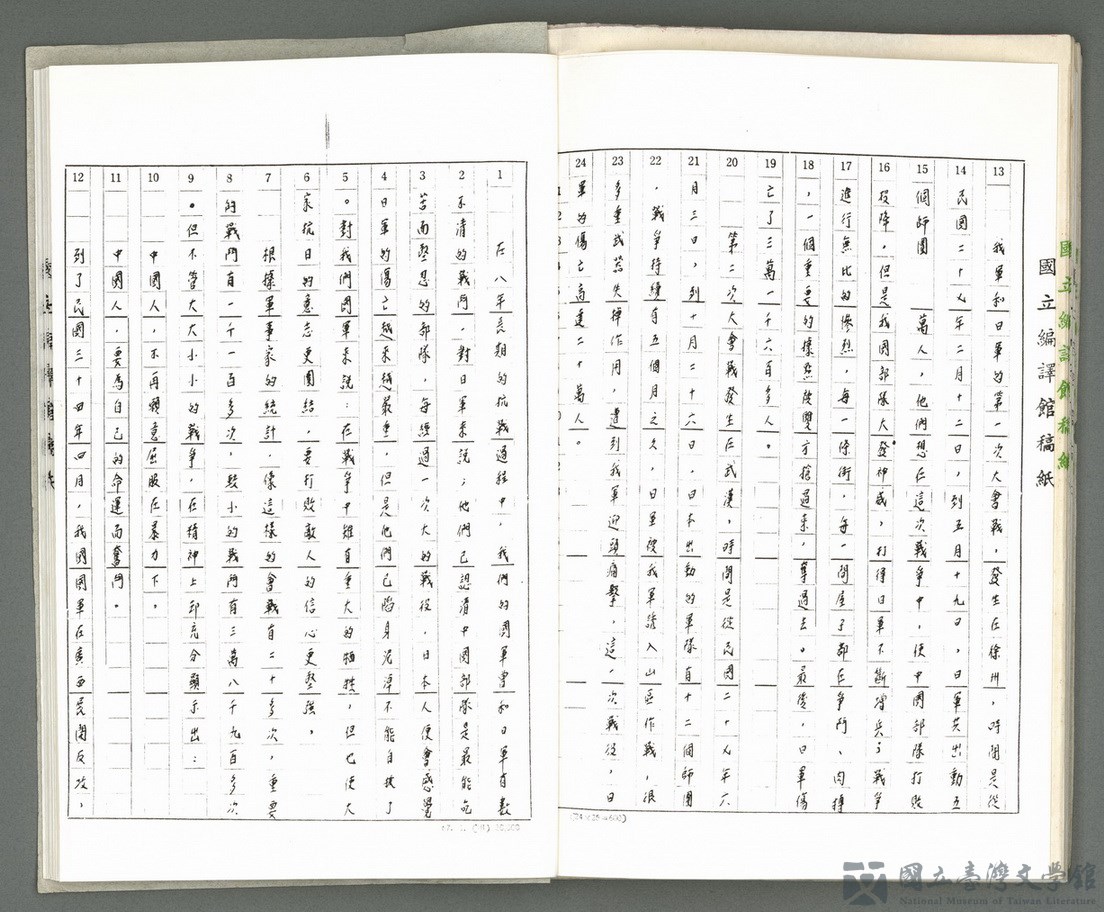 國立編譯館稿紙
國立編譯館稿紙
13
我軍和日軍的第一次大會戰，發生在徐州，時間是從
14
民國二十七年二月十二日，到五月十九日，日軍共出動五
15
個師團　萬人，他們想在這次戰爭中，使中國部隊打敗
16
投降，但是我國部隊大發神威，打得日軍不斷增兵，戰爭
17
進行無比的慘烈，每一條街，每一間屋子都在爭鬥、肉搏
18
，一個重要的據點陂雙方搶過來，奪過去。最後，日軍傷
19
亡了三萬一千六百多人。
20
第二次大會戰發生在武漢，時間是從民國二十七年六
21
月三日，到十月二十六日，日本出動的軍隊有十二個師團
22
，戰爭持續有五個月之久，日軍被我軍誘入山區作戰，很
23
多重武器失掉作用，遭到我軍迎頭痛擊，這一次戰役，日
24
軍的傷亡高達二十萬人。
(24×25=600)
1
在八年長期的抗戰過程中，我們的國軍曾和日軍有數
2
不清的戰鬥，對日軍來說；他們已認清中國部隊是最能吃
3
苦而堅忍的部隊，每經過一次大的戰役，日本人便會感覺
4
日軍的傷亡越來越嚴重，但是他們已陷身泥淖不能自拔了
5
。對我們國軍來說：在戰爭中雖有重大的犧牲，但也使大
6
家抗日的意志更團結，要打敗敵人的信心更堅強，
7
根據軍事家的統計，像這樣的會戰有二十多次，重要
8
的戰鬥有一千一百多次，較小的戰鬥有三萬八千九百多次
9
。但不管大大小小的戰爭，在精神上卻充分顯示出：
10
中國人，不再願意屈服在暴力下，
11
中國人，要為自己的命運而奮鬥。
12
到了民國三十四年四月，我國國軍在廣西展開反攻，
國立臺灣文學館
National Museum of Taiwan Literature